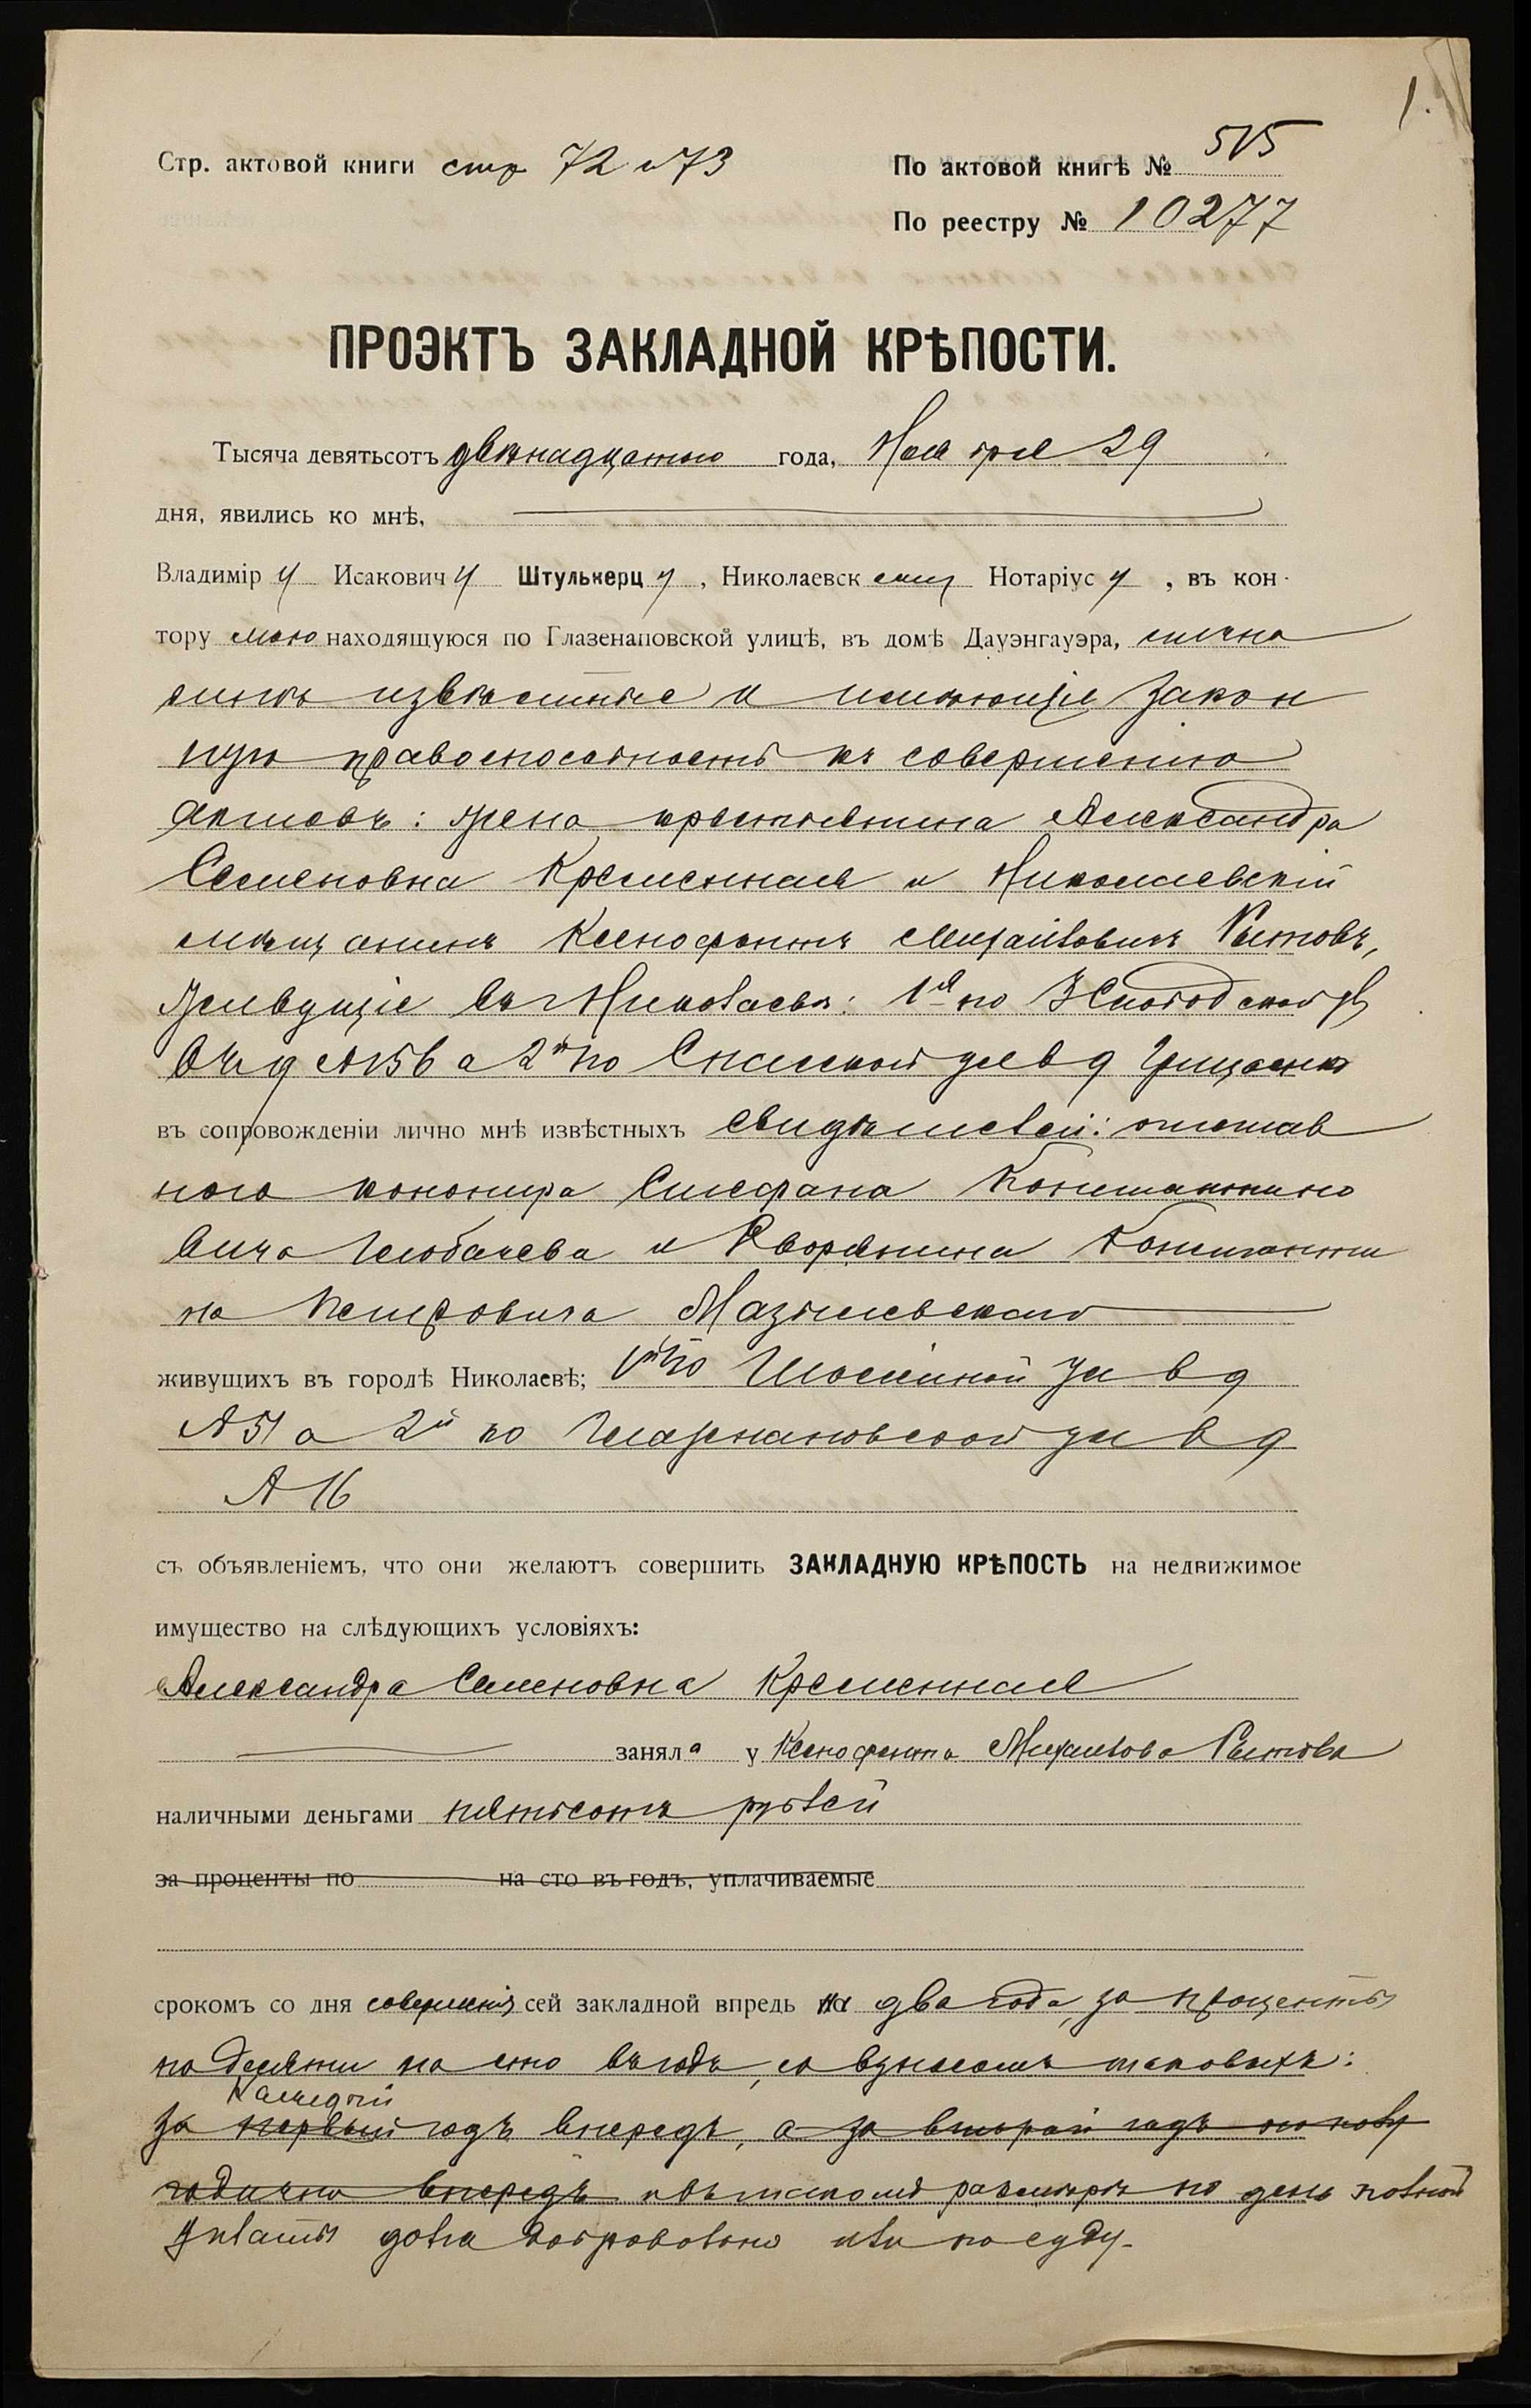 1.
Стр. актовой книги стр 72 и 73
По актовой книгѣ № 515
По реестру № 10277
ПРОЭКТЪ ЗАКЛАДНОЙ КРѢПОСТИ.
Тысяча девятьсотъ двѣнадцатого года, Ноября 29
дня, явились ко мнѣ,
Владимір у Исакович у Штулькерц у, Николаевск ому Нотаріус у, въ кон-
тору мою находящуюся по Глазенаповской улицѣ, въ домѣ Дауэнгауэра, лично
мнѣ извѣстные и имѣющіе закон
ную правоспособность къ совершенію
актовъ: жена крестьянина Александра
Семеновна Кременная и Николаевскій
мѣщанинъ Ксенофонтъ Михайловичъ Рытовъ,
живущіе въ г Николаевѣ: 1я по 3 Слободской ул
въ д №156 а 2й по Спасской ул в д Грищенко
въ сопровожденіи лично мнѣ извѣстныхъ свидѣтелей: отстав
ного канонира Стефана Константино
вича и Дворянина Константи
на Петровича
живущихъ въ городѣ Николаевѣ; 1й по ул в д
№ 51 а 2й по Глазенаповской ул в д
№ 16
съ объявленіемъ, что они желаютъ совершить ЗАКЛАДНУЮ КРѢПОСТЬ на недвижимое
имущество на слѣдующихъ условіяхъ:
Александра Семеновна Кременная
заняла у Ксенофонта Михайлова Рытова
наличными деньгами пятьсотъ рублей
за проценты по на сто въ годъ, уплачиваемые
срокомъ со дня совершенія сей закладной впредь на два года, за проценты
по десяти на сто въ годъ, со взносомъ таковыхъ:
каждый
за первый годъ впередъ, а за второй годъ по полу
годично впередъ и въ такомъ размѣрѣ по день полной
уплаты долга добровольно или по суду.